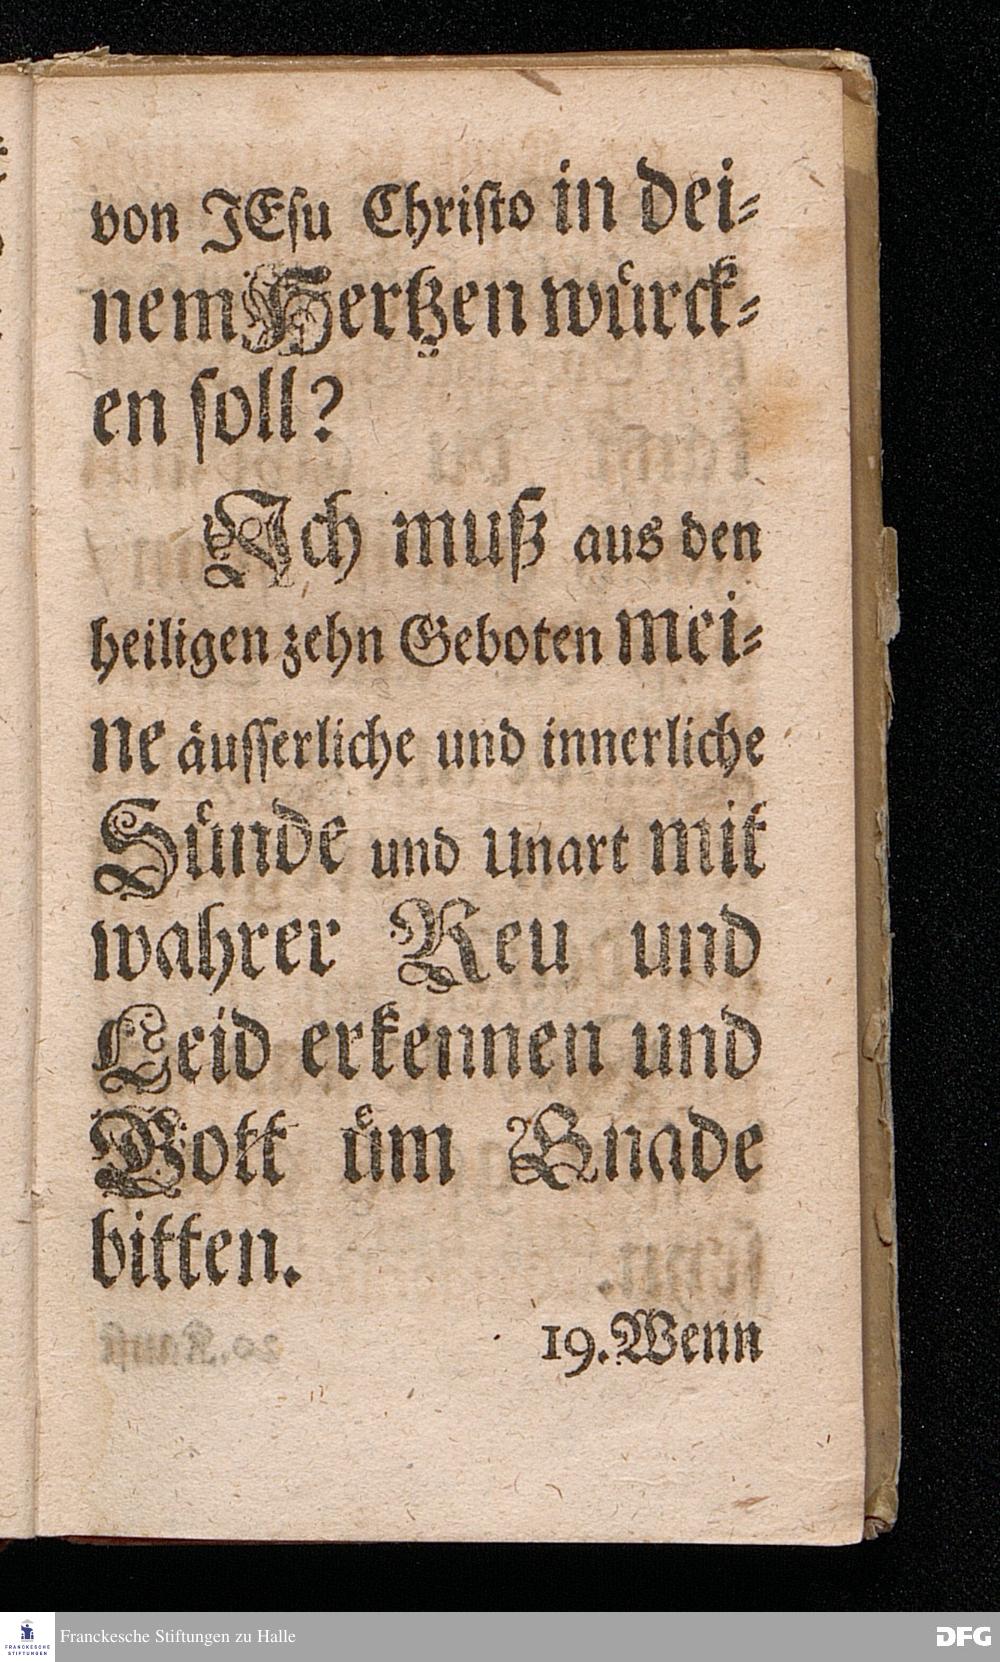 von JEsu Christo in dei⸗
nem Hertzen wuͤrck⸗
en soll?
Ich muß aus den
heiligen zehn Geboten mei⸗
ne äusserliche und innerliche
Suͤnde und Unart mit
wahrer Reu und
Leid erkennen und
Gott uͤm Gnade
bitten.
19. Wenn
FRANCKESCHE
STIFTUNGEN
Franckesche Stiftungen zu Halle
DFG